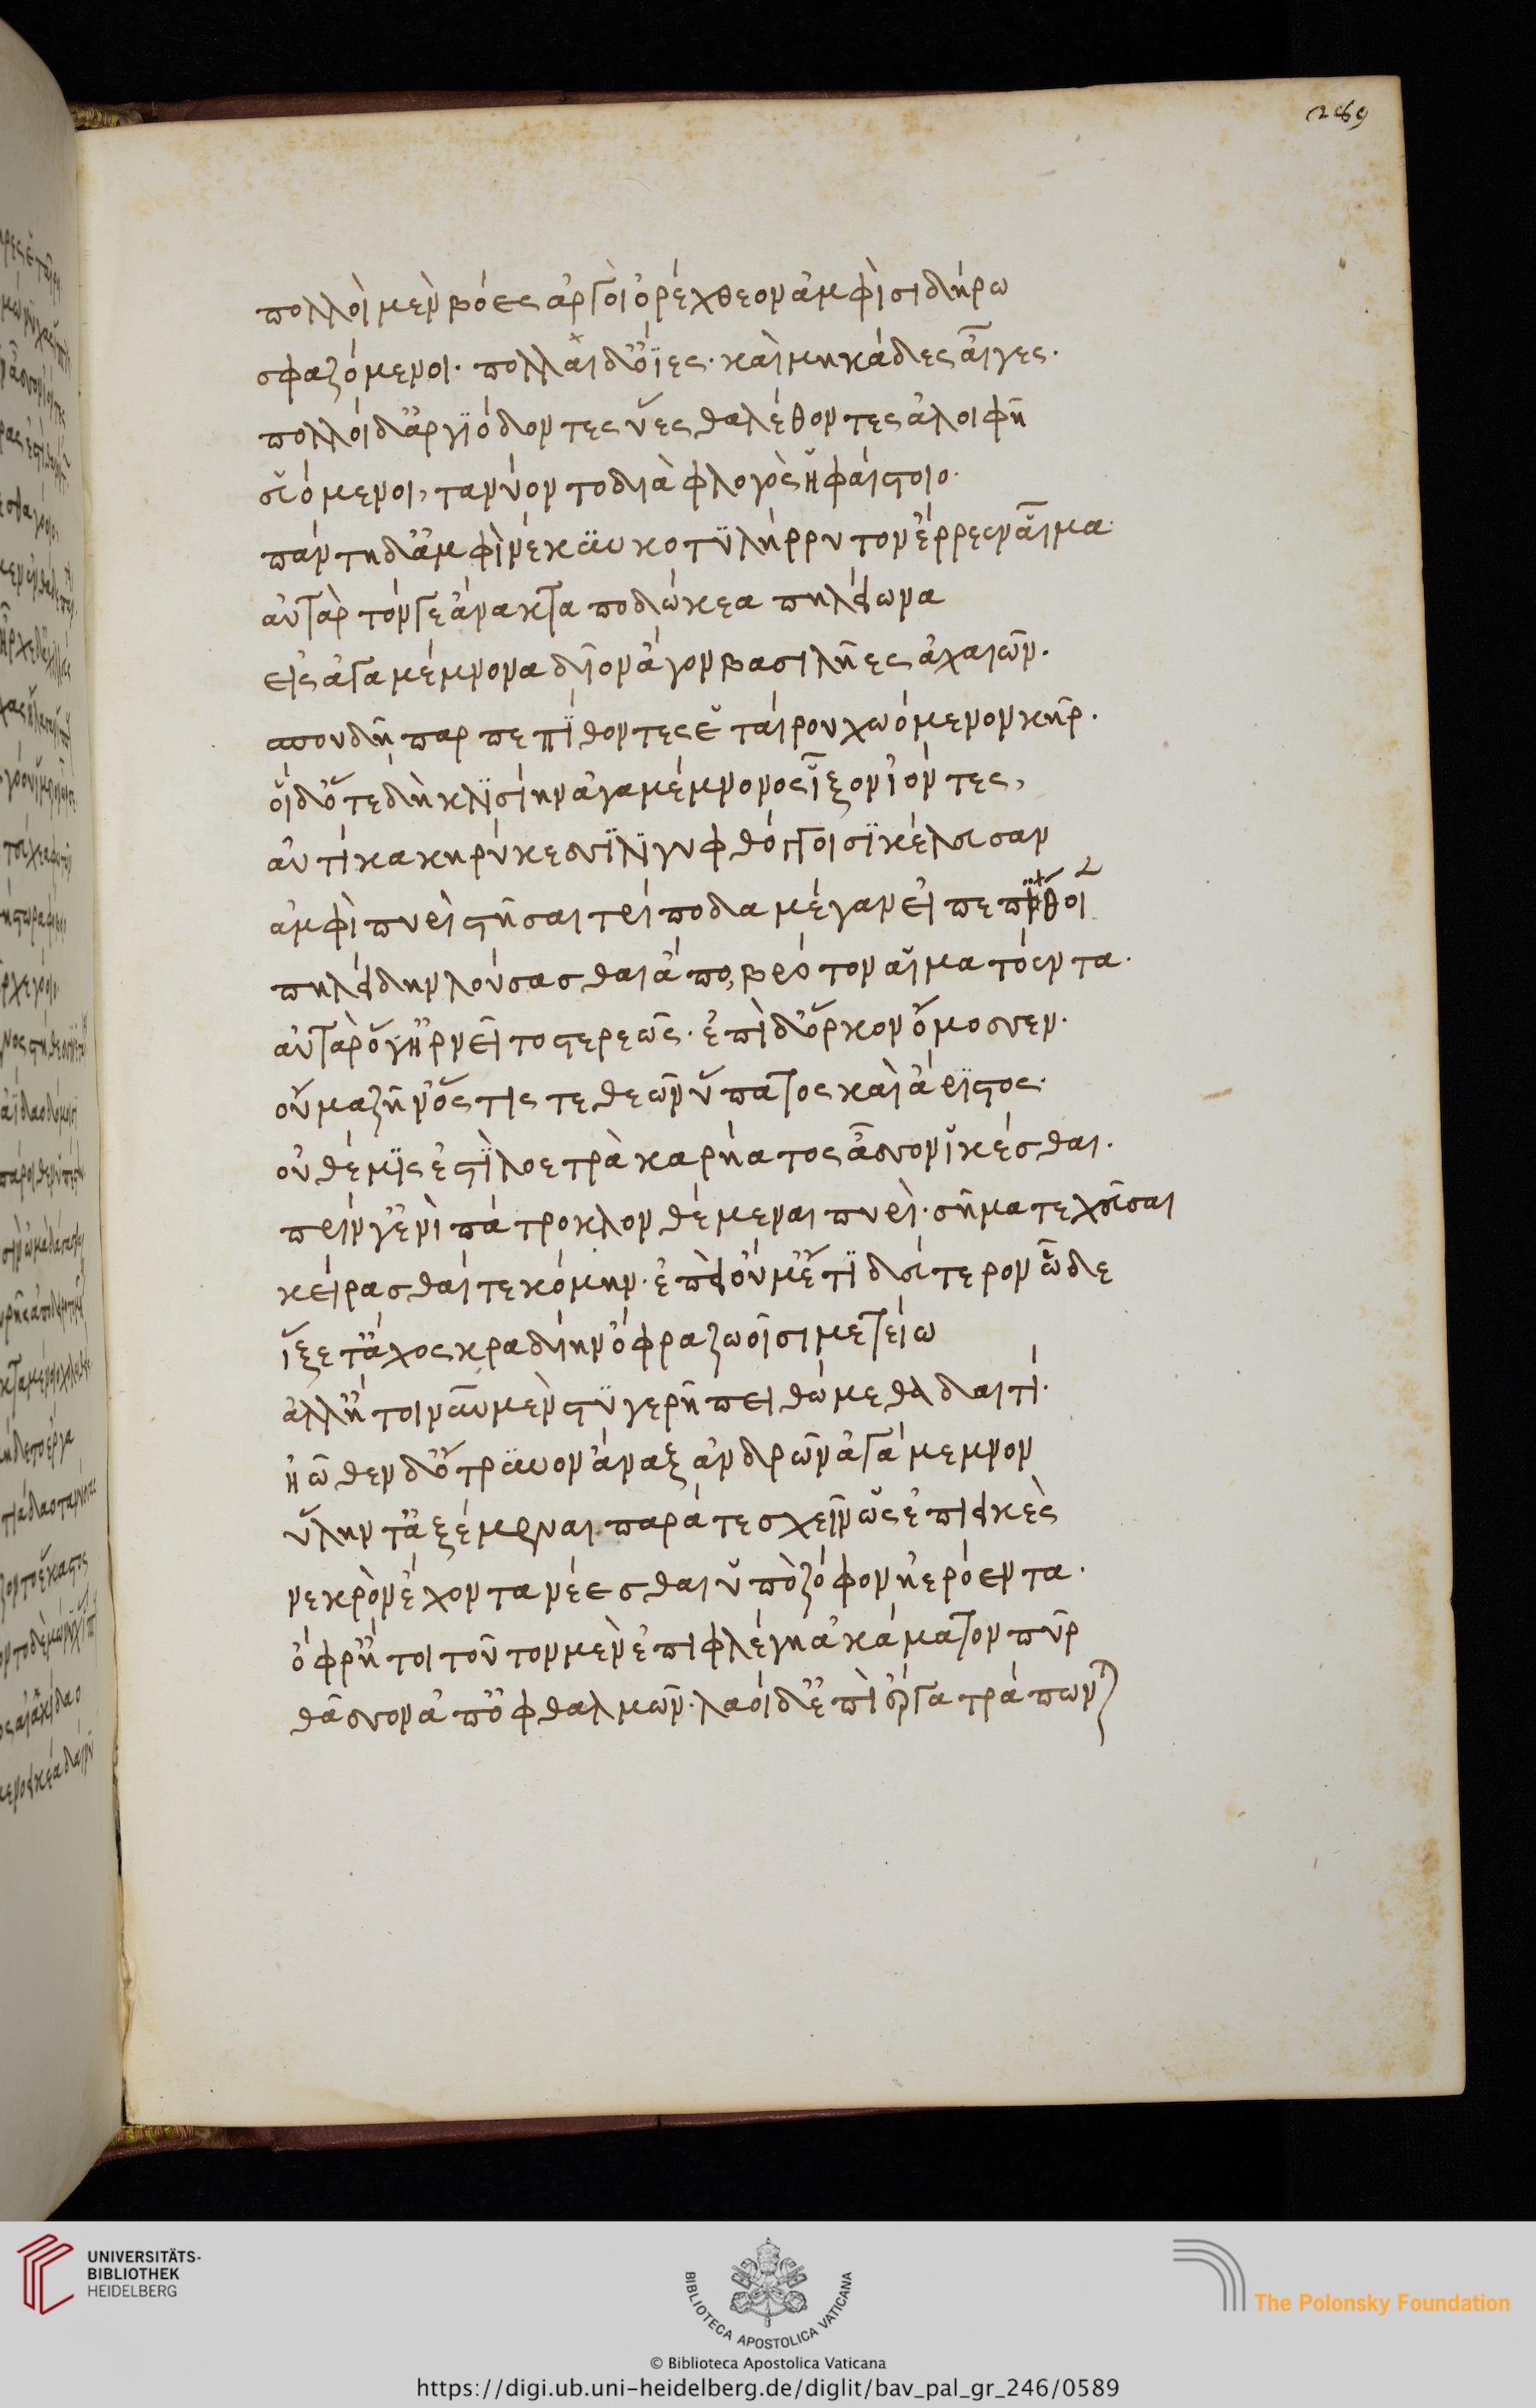 269
πολλοὶ μὲν βόες ἀργοὶ ὀρέχθεον ἀμφὶ σιδήρω
σφαζόμενοι. πολλαὶ δ' ὄϊες. καὶ μηκάδες αἶγες.
πολλοὶ δ' ἀργϊόδοντες ὕες θαλέθοντες ἀλοιφῆ
εὑόμενοι, τανύοντο διὰ φλογὸς ἡφαίστοιο.
πάντη δ' ἀμφὶ νέκϋν κοτϋλήρρυτον ἔρρεεν αἷμα.
αὐτὰρ τόνγε ἄνακτα ποδώκεα πηλείωνα
εἰς ἀγαμέμνονα δῖον ἄγον βασιλῆες ἀχαιῶν.
σπουδῆ παρπεπϊθόντες ἑταίρου χωόμενον κῆρ.
οἱ δ' ὅτε δὴ κλϊσίην ἀγαμέμνονος ἷξον ἰόντες,
αὐτίκα κηρύκεσσϊ λϊγυφθόγγοισϊ κέλευσαν
ἀμφὶ πυρὶ στῆσαι τρίποδα μέγαν εἰ πεπίθοι
πηλείδην λούσασθαι ἄπο βρότον αἱματόεντα.
αὐτὰρ ὅγ' ἠρνεῖτο στερεῶς. ἐπὶ δ' ὅρκον ὄμοσσεν.
οὐ μὰ ζῆν' ὅς τίς τε θεῶν ὕπατος καὶ ἄρϊστος.
οὐ θέμϊς ἐστϊ λοετρὰ καρήατος ἆσσον ἱκέσθαι.
πρίν γ' ἐνὶ πάτροκλον θέμεναι πυρὶ. σῆμά τε χεῦσαι
κείρασθαί τε κόμην. ἐπεὶ οὔ μ' ἔτϊ δεύτερον ὧδε
ἵξετ' ἄχος κραδίην ὄφρα ζωοῖσι μετείω
ἀλλ' ἤτοι νῦν μὲν στϋγερῆ πειθώμεθα δαιτί.
ἠῶθεν δ' ὄτρϋνον ἄναξ ἀνδρῶν ἀγάμεμνον
ὕλην τ' ἀξέμεναι παρά τε σχεῖν ὡς ἐπιεικὲς
νεκρὸν ἔχοντα νέεσθαι ὑπὸ ζόφον ἠερόεντα.
ὄφρ' ἤτοι τοῦτον μὲν ἐπιφλέγη ἀκάματον πῦρ
θᾶσσον ἀπ' ὀφθαλμῶν. λαοὶ δ' ἐπὶ ἔργα τράπων)
UNIVERSITÄTS-
BIBLIOTHEK
HEIDELBERG
BIBLIOTECA APOSTOLICA VATICANA
The Polonsky Foundation
© Biblioteca Apostolica Vaticana
https://digi.ub.uni-heidelberg.de/diglit/bav_pal_gr_246/0589